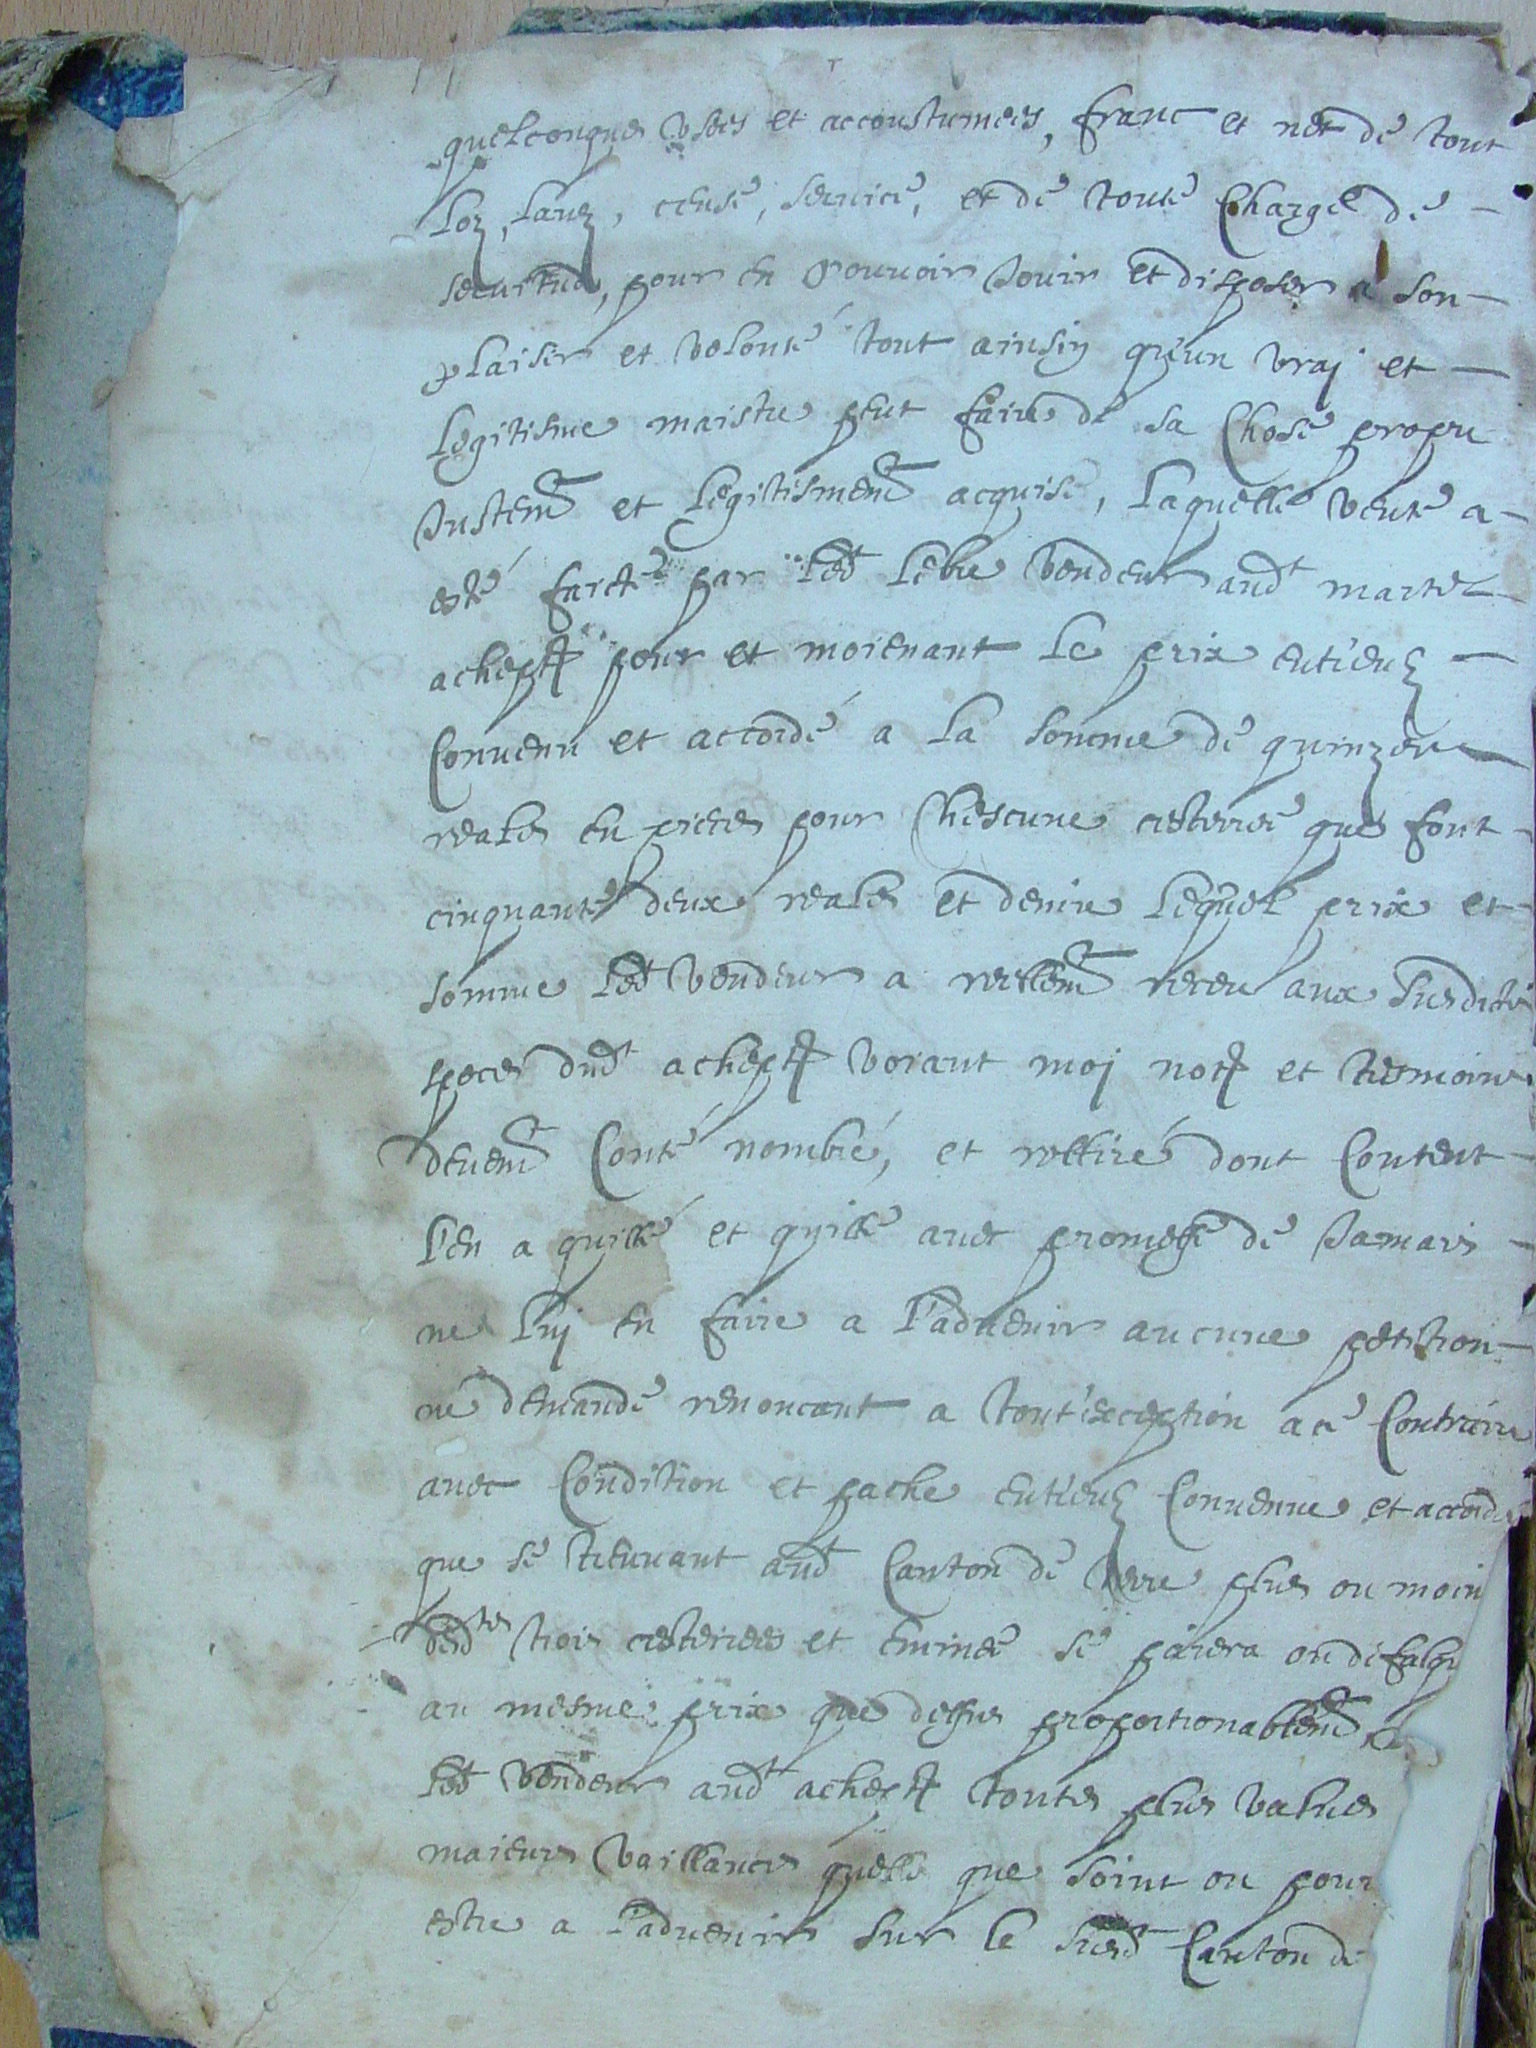 quelconques usées et accoustumées, franc et net de tout
loz, lauz, cense, seruice, et de toute Charge de
seruitude, pour en pouuoir Jouir et disposer a son
plaisir et volonté tout ainsin qu'un vraj et
legitisme maistre peut faire de sa Chose propre
Justemt et legitismemt acquise, laquelle vente a
esté faicte par ledt lebre vendeur audt martel
achept pour et moienant le prix entieulz
Conuenu et accordé a la somme de quinze
reales en pieces pour Chescune cesteree que font
cinquante deux reales et demie lequel prix et
somme ledt vendeur a reellemt receu aux susdites
speces dudt achept voiant moj notre et tesmoins
deuemt Conté nombré, et rettiré dont Content
l'en a quitté et quitte auec promesse de Jamais
ne luj en faire a l'aduenir aucune petition
ne demande renoncant a tout'exception a ce Contraire
auec Condition et pache entieulz Conuenue et accord
que se treuuant audt Canton de terre plus ou moin
desdtes trois cesterees et emine se paiera ou difalqu
au mesme prix que dessus proportionablemt
ledt vendeur audt achept toutes plus values
maieurs vaillances quelle que soint ou pour
estre a l'aduenir sur le susdt Canton de